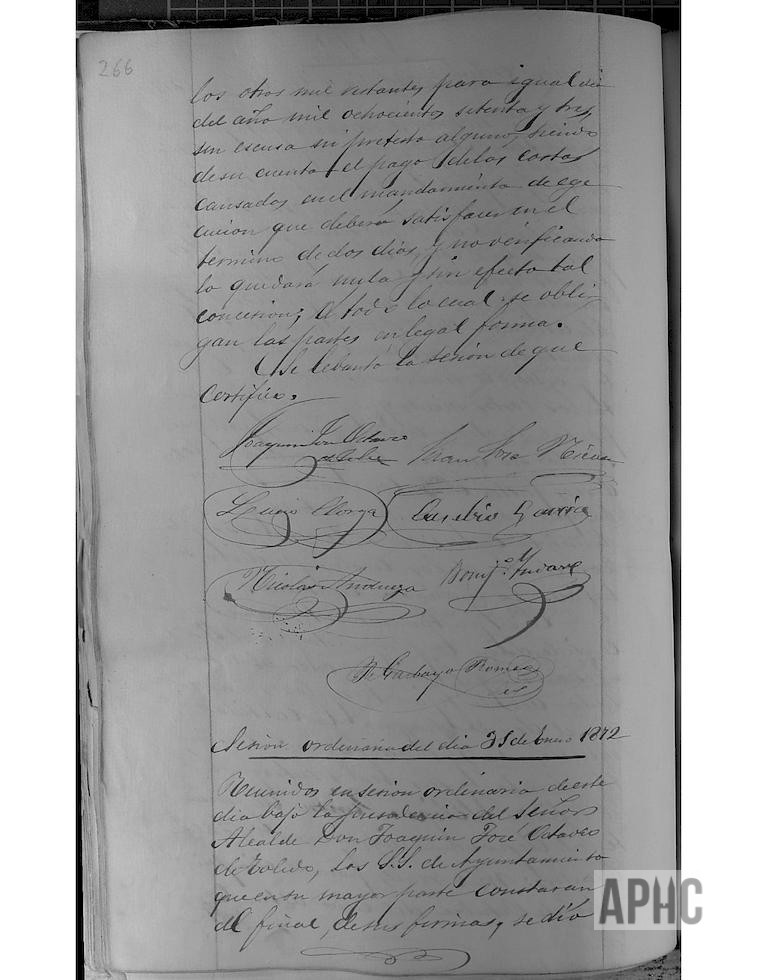 266
los otros mil restantes para igual dia
del año mil ochocientos setenta y tres,
sin escusa ni pretesto alguno, siendo
de su cuenta el pago de las costas
causadas en el mandamiento de ege
cucion que deberá satisfacer en el
termino de dos dias, y no verificando
lo quedará nula y sin efecto tal
concesion; á todo lo cual se obli-
gan las partes en legal forma.
Se lebantó la sesion de que
Certifico.
Joaquin José Octavio
de Toledo
Juan José
Lucio Llorga Eusebio Garcia
Nicolas Andueza Bonif.º
Garbayo
Sesion ordinaria del dia 31 de Enero 1872
Reunidos en sesion ordinaria de este
dia bajo la presidencia del Señor
Alcalde Don Joaquin José Octavio
de Toledo, los S.S. de Ayuntamiento
que en su mayor parte constarán
al final de sus firmas, se dió
APHC